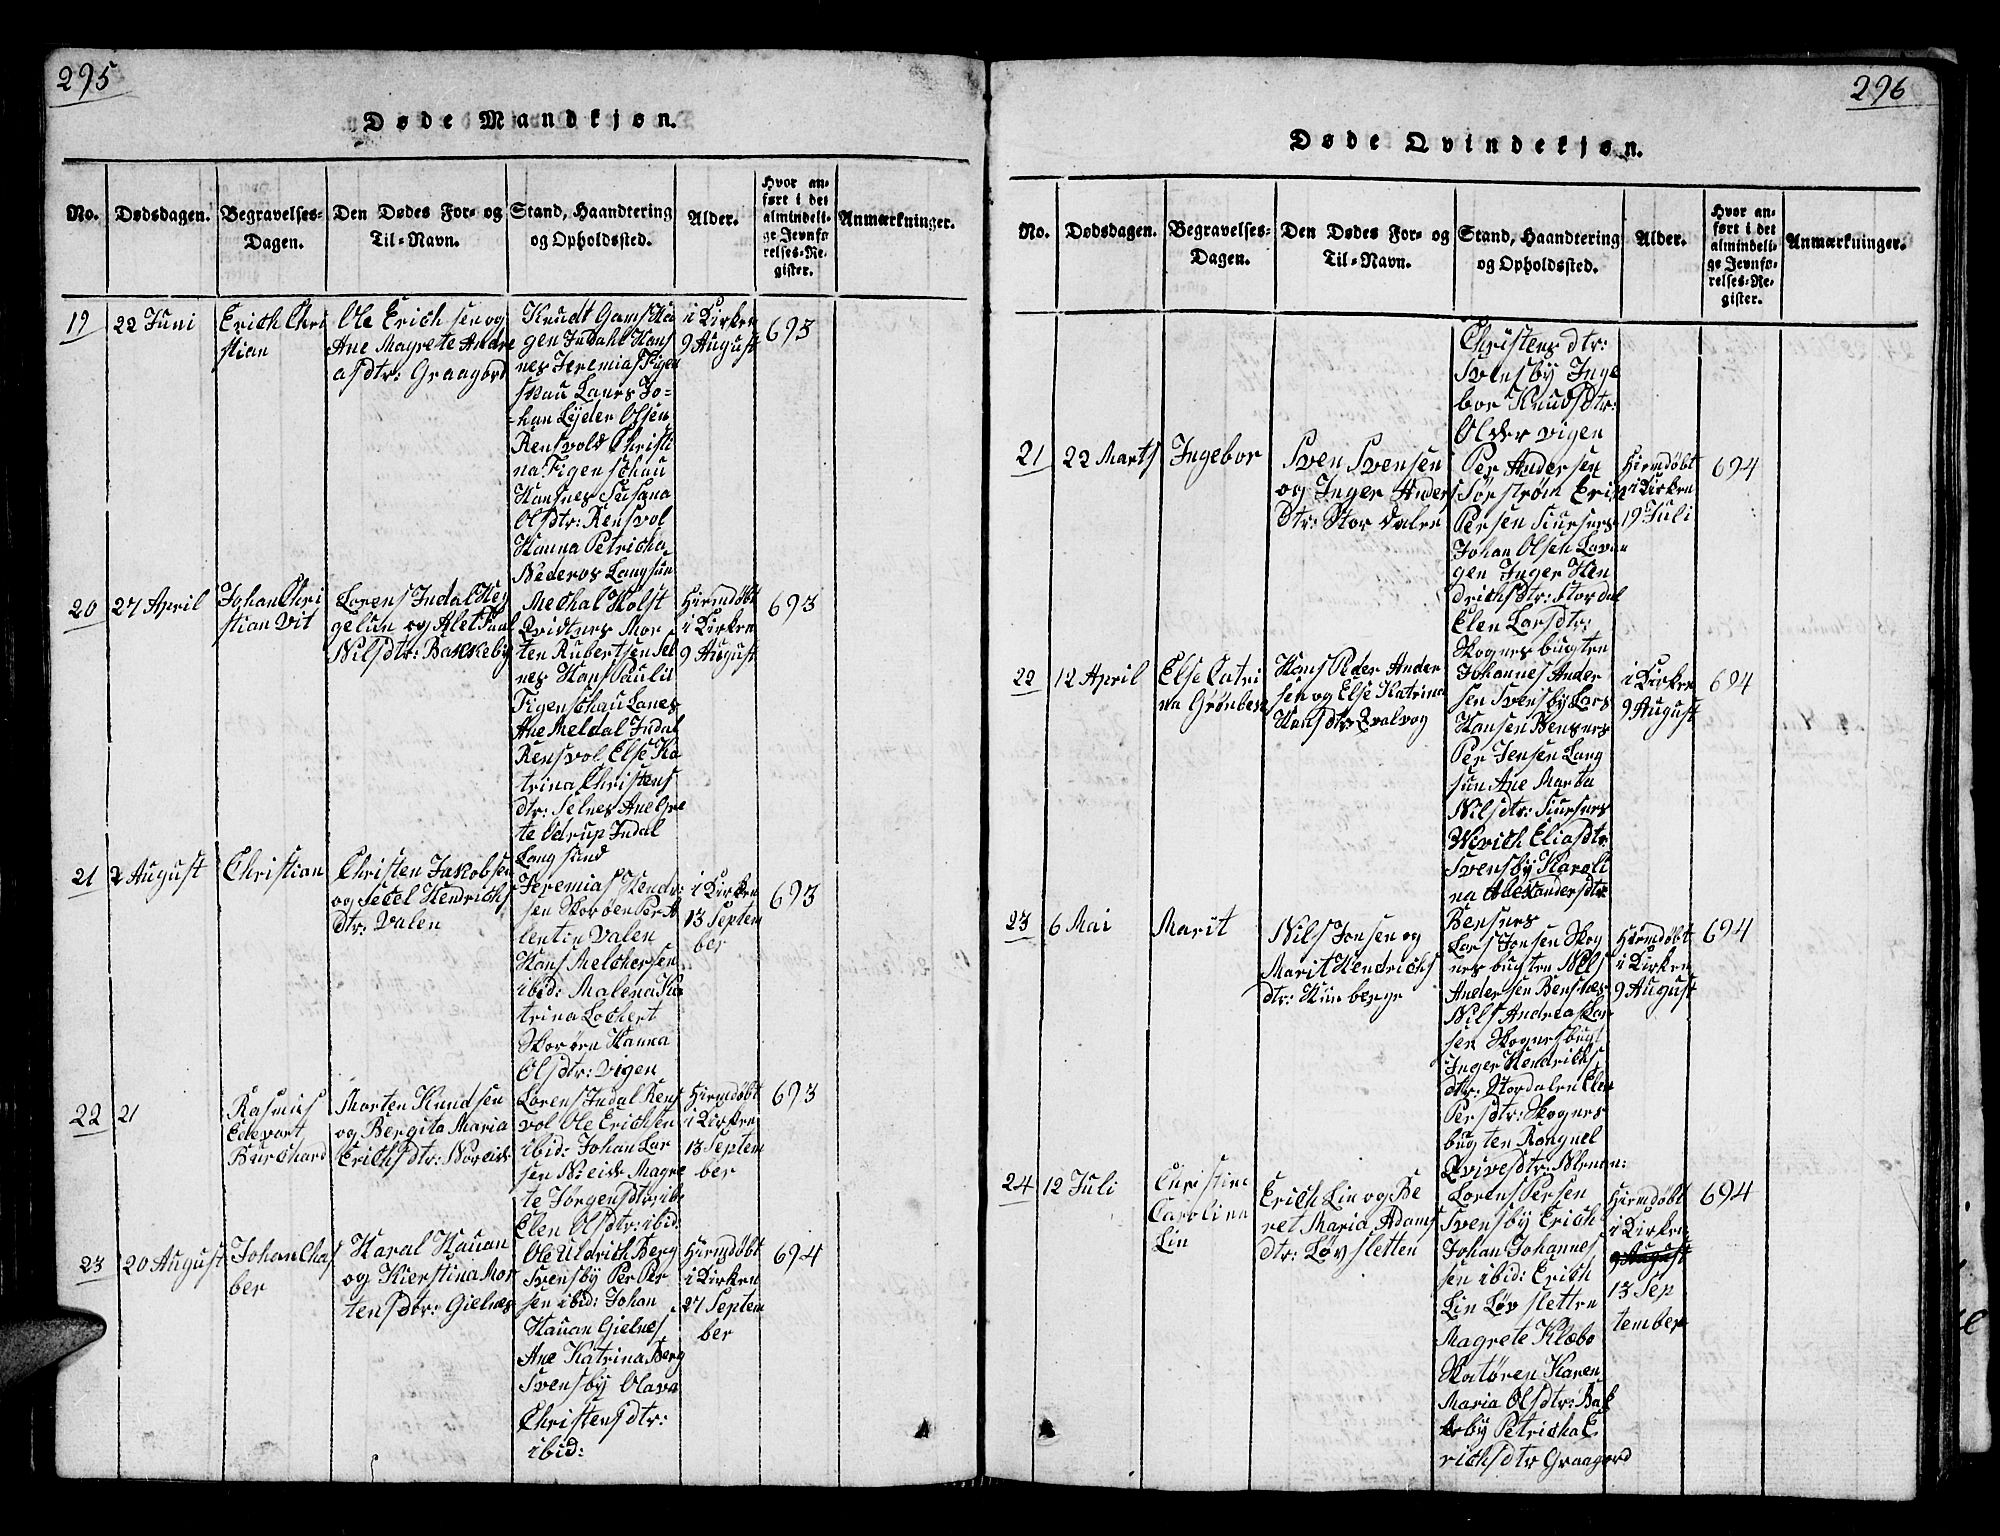 295
Døde Mandkjøn.
No.
Dødsdagen.
Begravelses-
Dagen.
Den Dødes For- og
Til-Navn.
Stand, Haandtering
og Opholdssted.
Alder.
Hvor an-
ført i det
almindeli-
ge Jevnfø-
relses-Re-
gister.
Anmærkninger.
19
22 Juni
Erich Chri
stian
Ole Erichsen og
Ane Magrete Andre
asdtr: Graagord
Knudt Gams Ha
gen Indahl Hans
nes Jeremias Figen
skau Lanes Jo-
han Lyder Olsen
Rensvold Christi
na Figenschau
Hansnes Susana
Olsdtr: Rensvol
Hanna Petricha
Nideros Langsun
i Kirken
9 August
693
20
27 April
Johan Chri
stian Vit
Lorens Indal Hey
gelun og Alet
Nilsdtr: Bakkeby
Mechal Holst
Qvidtnes Mor
ten Rubertsen Sel
nes Hans Paulii
Figenschau Lanes
Ane Meldal Indal
Rensvol Else Ka
trina Christens
dtr: Selnes Ane Gre
te Odrup Indal
Langsund
Hiemdøbt
i Kirken
9 August
693
21
2 August
Christian
Christen Jakobsen
og Setel Hendrichs
dtr: Valen
Jeremias Hendr:
sen Skorøen Per A
lentin Valen
Hans Melchersen
ibid: Malena Ka
trina Lochert
Skorøen Hanna
Olsdtr: Vigen
i Kirken
13 Septem
ber
693
22
21
Rasmus
Edevart
Burchard
Morten Knudsen
og Bergita Maria
Erichsdtr: Noreide
Lorens Indal Rens
vol Ole Erichsen
ibid: Johan Lar
sen N: eide Magre
te Jørgensdtr: ibi
Elen Olsdtr: ibid:
Hiemdøbt
i Kirken
13 Septem
ber
693
23
20 August
Johan Chas
ber
Haral Hauan
og Kierstina Mor
tensdtr: Gielnes
Ole Uldrich Berg
Svensby Per Per
sen ibid: Johan
Hauan Gielnes
Ane Katrina Berg
Svensby Olava
Christensdtr:
ibid:
Hiemdøbt
i Kirken
27 Septem
ber
694
296
Døde Qvindekjøn.
No.
Dødsdagen.
Begravelses-
Dagen.
Den Dødes For- og
Til-Navn.
Stand, Haandtering
og Opholdssted.
Alder.
Hvor an-
ført i det
almindeli-
ge Jevnfø-
relses-Re-
gister.
Anmærkninger.
Christensdtr:
Svensby Inge
bor Knudsdtr:
Oldervigen
21
22 Marts
Ingebor
Sven Svensen
og Inger Anders
dtr: Stordalen
Per Andersen
Sørstrøm Erik
Persen Siursnes
Johan Olsen Lavan
gen Inger Hen
drichsdtr: Stordal
Elen Larsdtr:
Skognesbugten
Hiemdøbt
i Kirken
19 Juli
694
22
12 April
Else Catri
na Grønbeck
Hans Peder Ander
sen og Else Katrina
Hansdtr: Qvalvog
Johannes Ander
sen Svensby Lars
Hansen Bensnes
Per Jensen Lang
sun Ane Marta
Nilsdtr: Siursnes
Wirich Eliasdtr
Svensby Karoli
na Alexandersdtr
Bensnes
i Kirken
9 August
694
23
6 Mai
Marit
Nils Jonsen og
Marit Hendrichs
dtr:
Lars Jonsen Skog
nesbugten Nils
Andersen Bensnes
Nils Andreas Lar
sen Skognesbugt
Inger Hendrichs
dtr: Stordalen Elen
Persdtr: Skognes
bugten Rongnel
Qvivesdtr:
Hiemdøbt
i Kirken
9 August
694
24
12 Juli
Christine
Carolina
Lin
Erich Lin og Be
ret Maria Adams
dtr: Løvsletten
Lorens Persen
Svensby Erich
Johan Johannes
sen ibid: Erich
Lin Løvsletten
Magrete Klæbo
Skatøren Karen
Maria Olsdtr: Bak
keby Petricha E
richsdtr Graagord
Hiemdøbt
i Kirken:
9 August
13 Sep
tember
694